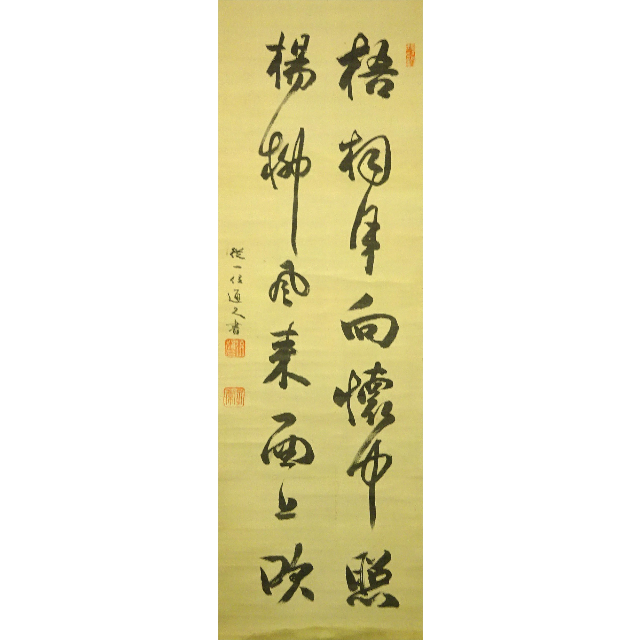 梧桐月向懷中照
楊柳風來面上吹
從一位通久書